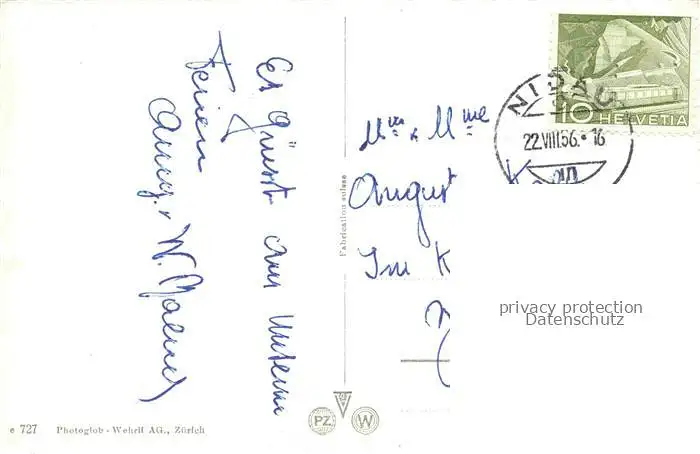 Es Grüsst aus Unseren
Ferien
Anny + W.
Fabrication suisse
Mm & Mme
August
Im K
10 HELVETIA
NIDAU
22.VIII.56.•16
privacy protection
Datenschutz
PZ
W
e 727 Photoglob-Wehrli AG., Zürich